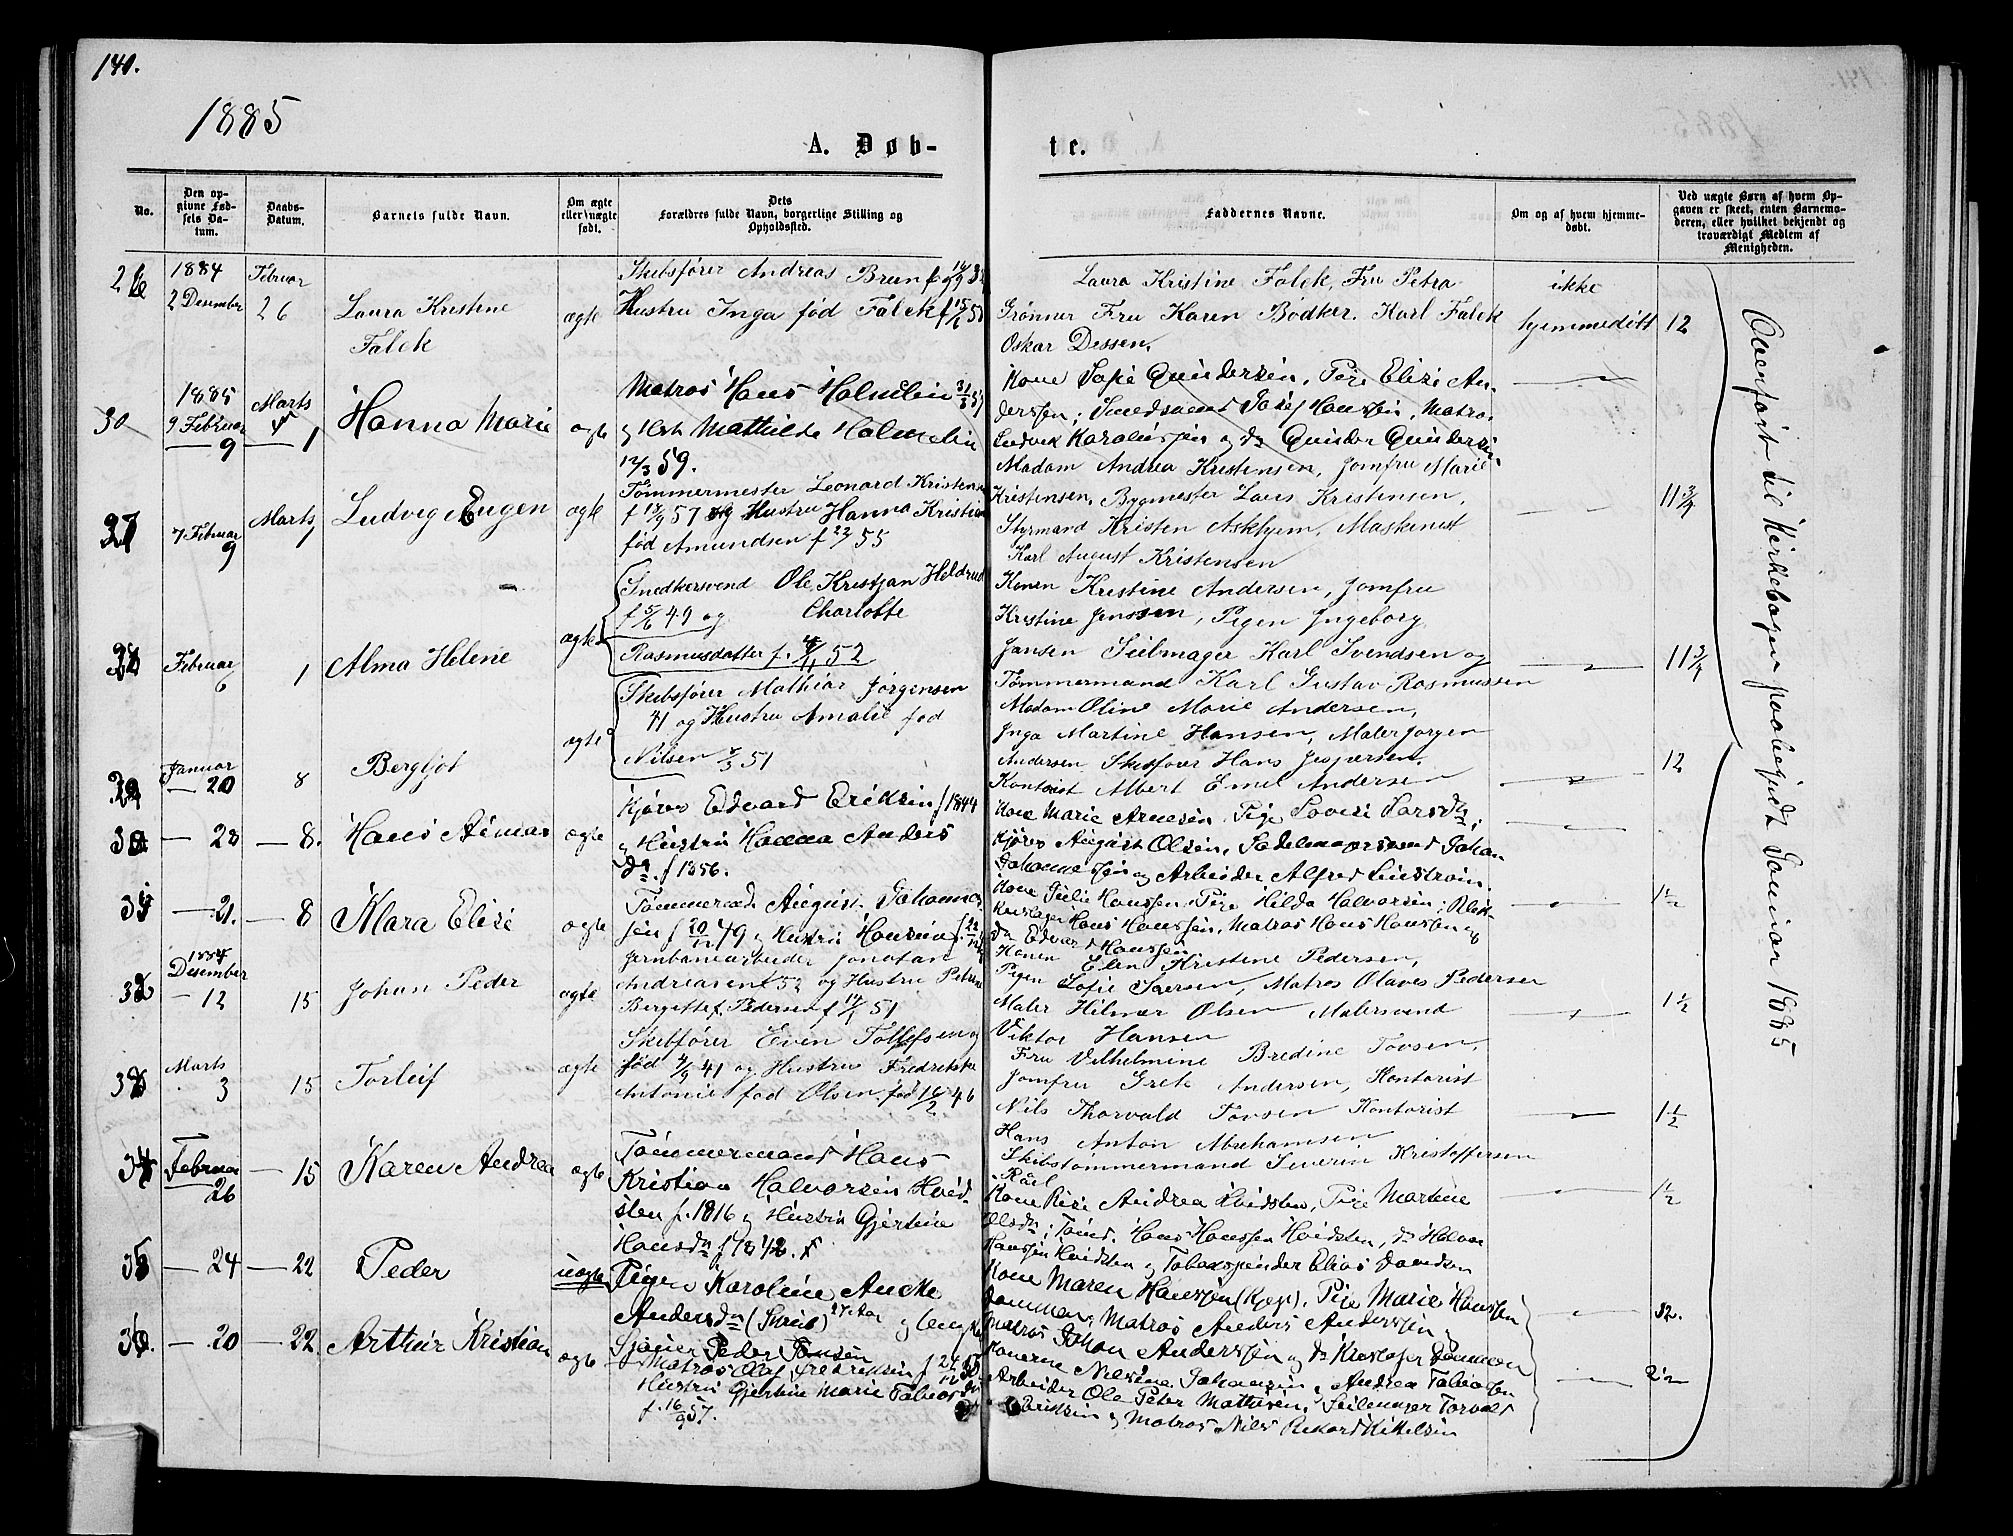 140.
1885
A. Døb-
te.
No.
Den opgivne Fødsels Datum.
Daabs-Datum.
Barnets fulde Navn.
Om ægte eller uægte født.
Dets Forældres fulde Navn, borgerlige Stilling og Opholdssted.
Faddernes Navne.
Om og af hvem hjemmedøbt.
Ved uægte Børn af hvem Opgaven er skeet, enten Barnemoderen, eller hvilket bekjendt og troværdigt Medlem af Menigheden.
26
1884
2 Desember
Februar
26
Laura Kristine
Falck
ægte
Skibsfører Andreas Brun
Hustru Inga fød Falck
Laura Kristine Falck, Fru Petra
Grønner Fru Karen Bødker. Karl Falck
Oskar Dessen.
ikke
hjemmedøbt
12
30
1885
9 Februar
9
Marts
1
Hanna Marie
ægte
Matros Hans Holmelin
og Mathilde Holmelin
12/3 59.
Kone Sofie Gundersen, Pige Elise An-
derssen; Smedsvend Josef Hanssen, Matros
Ludvik Karoliussen og Gunder Gundersen
27
7 Februar
9
Marts
1
Ludvig Eugen
ægte
Tømmermester Leonard Kristensen
f 18/9 57 og Hustru Hanna Kristine
fød Amundsen f 22/7 55
Madam Andrea Kristensen, Jomfru Marie
Kristensen, Bygmester Lars Kristensen,
Styrmand Kristen Askhjem, Maskenist
Karl August Kristensen
11 3/4
28
Februar
6
1
Alma Helene
ægte
Snedkersvend Ole Kristjan Heldrud
f 5/6 49 og Charlotte
Rasmusdatter f. 52
Konen Kristine Andersen, Jomfru
Kristine Jenssen, Pigen Ingeborg
Jansen Seilmager Karl Svendsen og
Tømmermand Karl Gustav Rasmussen
11 3/4
29
Januar
20
8
Bergljot
ægte
Skibsfører Mathias Jørgensen
41 og Hustru Amalie fød
Nilsen 51
Madam Oline Marie Andersen,
Inga Martine Hansen, Maler Jørgen
Andersen Skibsfører Hans Jespersen,
Kontorist Albert Emil Andersen
12
30
— 28
— 8.
Hans
ægte
Kjører Edvard Eriksen f 1844
og Hustru Hanna Anders
da. f 1856.
Kone Marie Arnesen. Pige Lovise Larsda;
Kjører August Olsen, Sadelmagersvend Johan
Johannessen og Arbeider Alfred Lindstrøm.
31
— 21.
— 8
Klara Elise
ægte
Tømmermand August Johannes-
sen f 20/12 49 og Hustru
Kone Julie Hanssen, Pige Hilda Halvorsen; Blik-
kenslager Hans Hanssen, Matros Hans Hanssen og
do Edvard Hanssen
1 1/2
32
1884
Desember
— 12
15
Johan Peder
ægte
Jernbanearbeider Jonatan
Andreasen f 52 og Hustru Petrine
Bergette Pedersen f 14/1 51
Konen Elen Kristine Pedersen,
Pigen Sofie Larsen, Matros Olaves Pedersen
Maler Hilmar Olsen Malersvend
Viktor Hansen
1 1/2
33
Marts
3
15
Torleif
ægte
Skibfører Even Tollefsen og
fød 4/9 41 og Hustru Fredrikke
Antonie fød Olsen fød 16/2 46
Fru Vilhelmine Bredine Tovsen,
Jomfru Grete Andersen, Kontorist
Nils Thorvald Tovsen Kontorist
Hans Anton Abrahamsen
Skibstømmermand Severin Kristoffersen
Råel
1 1/2
34
Februar
26
— 15
Karen Andrea
ægte
Tømmermand Hans
Kristian Halvorsen Hvid-
sten f. 1816 og Hustru Gjertine
Hansda f 1842.
Kone Andrea Hvidsten, Pige Martine
Olsda; Tømd. Hans Hanssen Hvidsten, do Halvor
Hanssen Hvidsten og Tobaxspinder Elias Davidsen
1/2
35
— 24
— 22
Peder
uægte
Pige Karoline
Andersda og Ungk.
Sjøger Peder
Kone Maren Hanssen (Kjøge), Pige Marie Hanssen
Matros Anders Anderssen,
Matros Johan Anderssen og do Kristofer
12.
36.
— 20
— 22.
Arthur Kristian
ægte
Matros Olaf Fredriksen
Hustru Gjertine Marie
f. 16/9 57.
Konerne Nilsine Johansen, Andrea
Arbeider Ole Peter Mathisen, Seilmager Torvald
Eriksen og Matros Nils Rikard Kittelsen
2 1/2
Overført til Kirkebogen paalagt Januar 1885